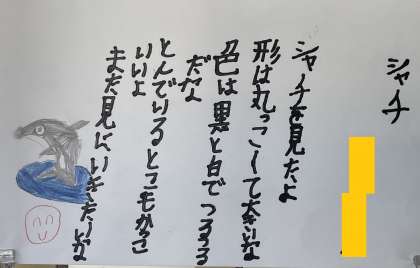 シャチ
シャチを見たよ
形は丸っこくて大きいな
色は黒と白でつるつる
だな
とんでいるところもかっこ
いいよ
また見にいきたいな